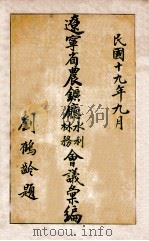 民國十九年九月
遼寧省農鑛廳林務水利會議彙編
劉鶴齡題